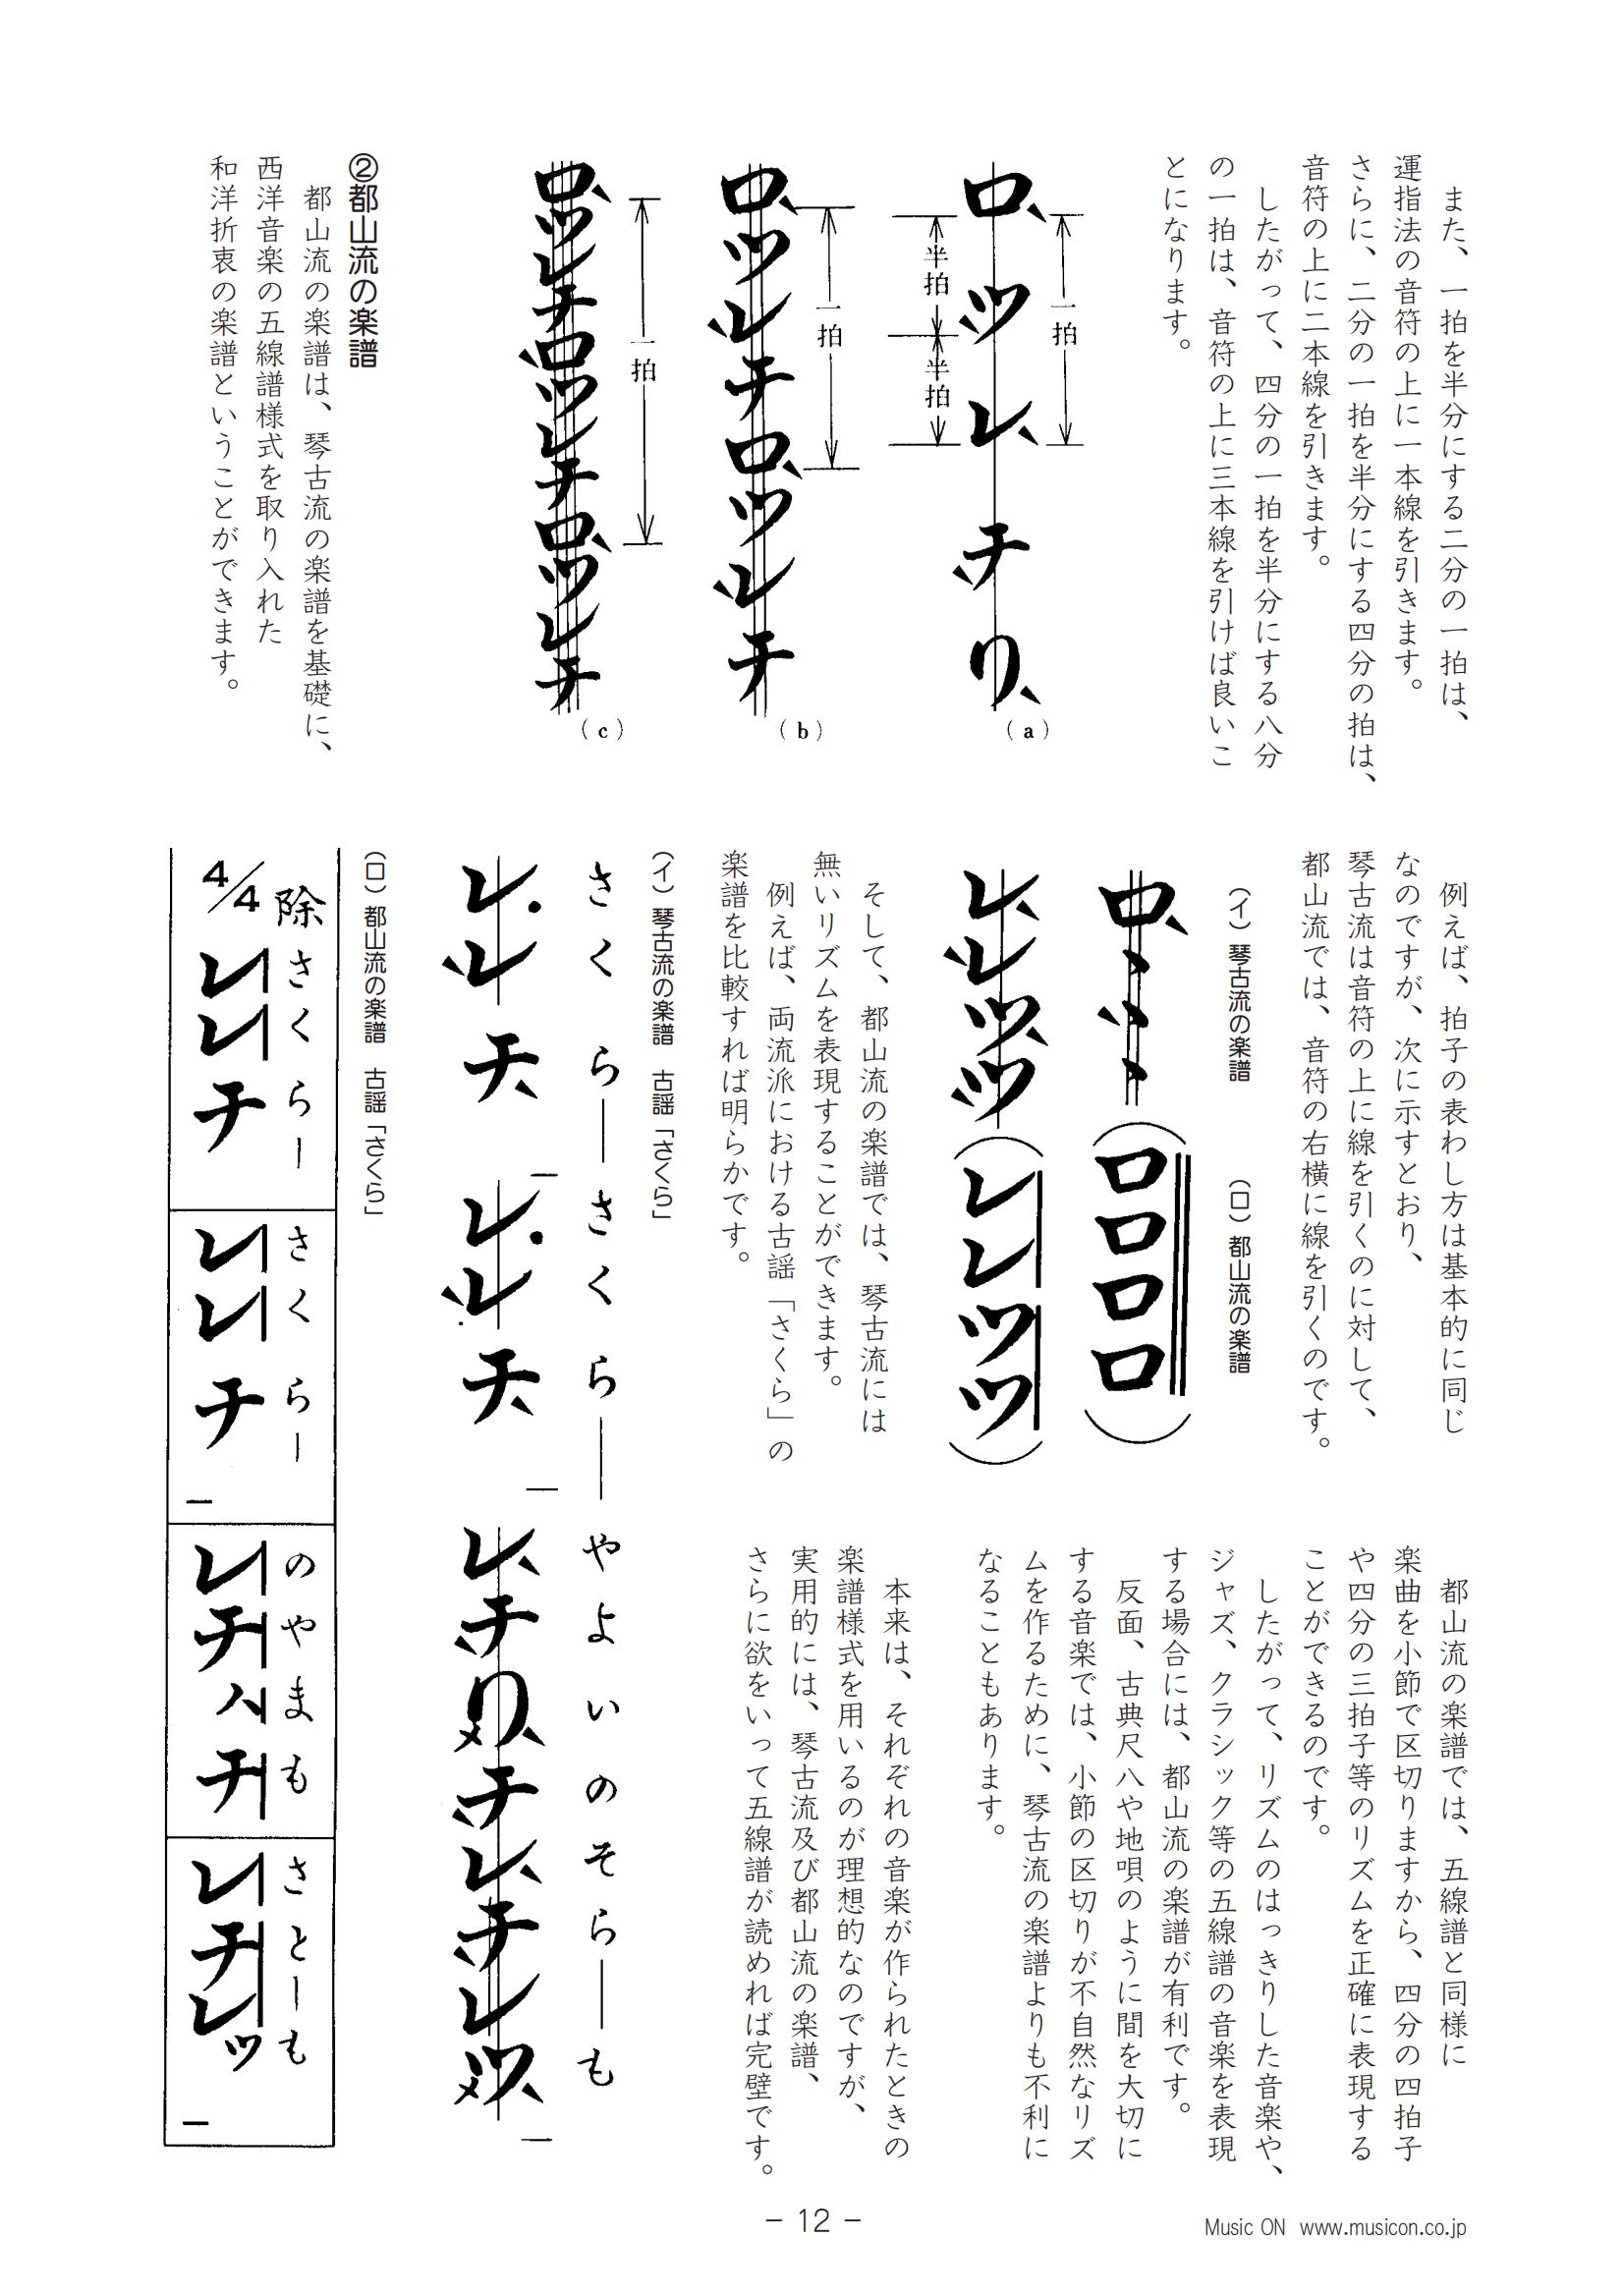 また、一拍を半分にする二分の一拍は、
運指法の音符の上に一本線を引きます。
さらに、二分の一拍を半分にする四分の拍は、
音符の上に二本線を引きます。
したがって、四分の一拍を半分にする八分
の一拍は、音符の上に三本線を引けば良いこ
とになります。
一拍
半拍
半拍
ロツレチリ
(a)
一拍
ロツレチロツレチ
(b)
一拍
ロツレチロツレチロツレチ
(c)
②都山流の楽譜
都山流の楽譜は、琴古流の楽譜を基礎に、
西洋音楽の五線譜様式を取り入れた
和洋折衷の楽譜ということができます。
例えば、拍子の表わし方は基本的に同じ
なのですが、次に示すとおり、
琴古流は音符の上に線を引くのに対して、
都山流では、音符の右横に線を引くのです。
(イ)琴古流の楽譜
(ロ)都山流の楽譜
ロヽヽヽ(ロロロロ)
レレツツ(レレツツ)
そして、都山流の楽譜では、琴古流には
無いリズムを表現することができます。
例えば、両流派における古謡「さくら」の
楽譜を比較すれば明らかです。
(イ)琴古流の楽譜 古謡「さくら」
さくら―さくら―やよいのそら―も
レレチレレチレチリチレチレツ
(ロ)都山流の楽譜 古謡「さくら」
除さくらーさくらーのやまもさとーも
4/4レレチレレチレチハチレチレツ
都山流の楽譜では、五線譜と同様に
楽曲を小節で区切りますから、四分の四拍子
や四分の三拍子等のリズムを正確に表現する
ことができるのです。
したがって、リズムのはっきりした音楽や、
ジャズ、クラシック等の五線譜の音楽を表現
する場合には、都山流の楽譜が有利です。
反面、古典尺八や地唄のように間を大切に
する音楽では、小節の区切りが不自然なリズ
ムを作るために、琴古流の楽譜よりも不利に
なることもあります。
本来は、それぞれの音楽が作られたときの
楽譜様式を用いるのが理想的なのですが、
実用的には、琴古流及び都山流の楽譜、
さらに欲をいって五線譜が読めれば完璧です。
- 12 -
Music ON www.musicon.co.jp